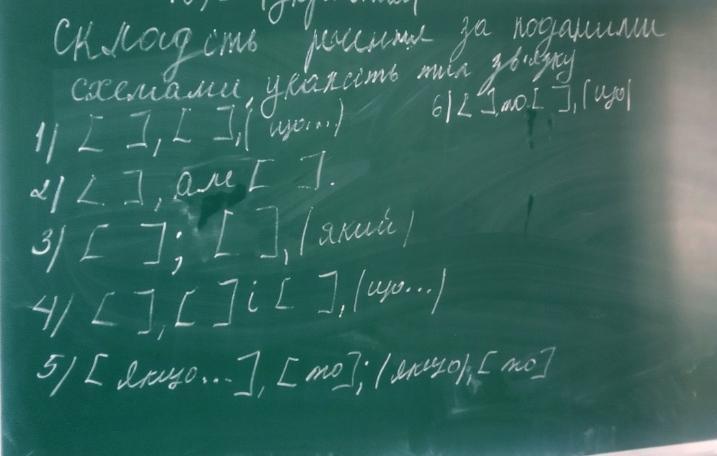 Складіть речення за поданими
схемами, укажіть тип зв'язку
1) [ ], [ ], (що...)
6) [ ], то [ ], (що)
2) [ ], але [ ].
3) [ ]; [ ], (який)
4) [ ], [ ] і [ ], (що...)
5) [якщо...], [то]; (якщо), [то]